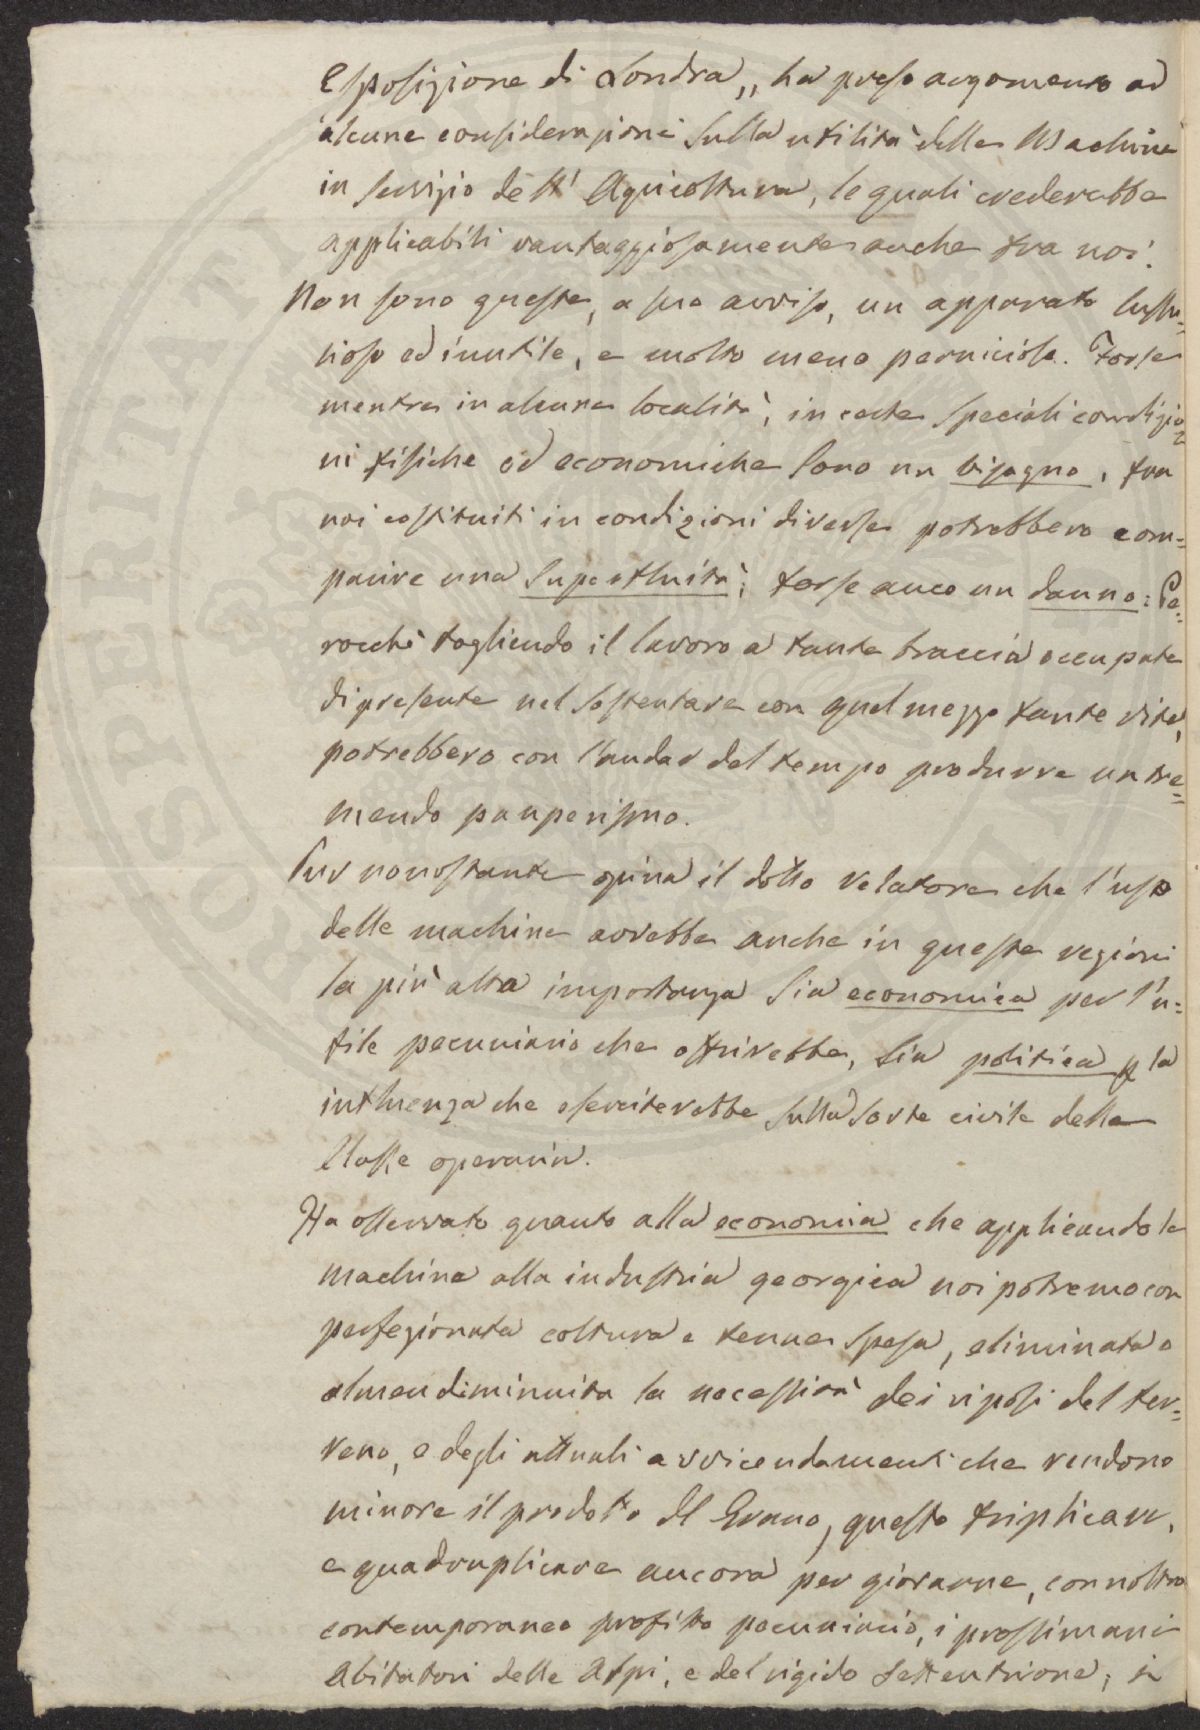 Esposizione di Londra,, ha preso argomento ad
alcune considerazioni sulla utilità delle Machine
in servizio dell' Agricoltura, le quali crederebbe
applicabili vantaggiosamente anche tra noi.
Non sono queste, a suo avviso, un apparato lussu=
rioso ed inutile, e molto meno pernicioso. Forse
mentre in alcune località, in certe speciali condizio=
ni fisiche ed economiche sono un bisogno, tra
noi costituiti in condizioni diverse potrebbero com=
parire una superfluità; forse anco un danno: Pe=
rocchè togliendo il lavoro a tante braccia occupate
di presente nel sostentare con quel mezzo tante vite,
potrebbero con l'andar del tempo produrre un tre=
mendo pauperismo.
Pur nonostante opina il dotto relatore che l'uso
delle machine avrebbe anche in queste regioni
la più alta importanza sia economica per l'u=
tile pecuniario che offrirebbe, sia politica p la
influenza che eserciterebbe sulla sorte civile della
Classe operaria.
Ha osservato quanto alla economia che applicando le
machine alla industria georgica noi potremo con
perfezionata coltura e tenue spesa, eliminata o
almen diminuita la necessità dei riposi del ter=
reno, e degli attuali avvicendamenti che rendono
minore il prodotto del Grano, questo triplicare,
e quadruplicare ancora per giovarne, con nostro
contemporaneo profitto pecuniario, i prossimani
abitatori delle Alpi, e del rigido settentrione; in
SPERITATI